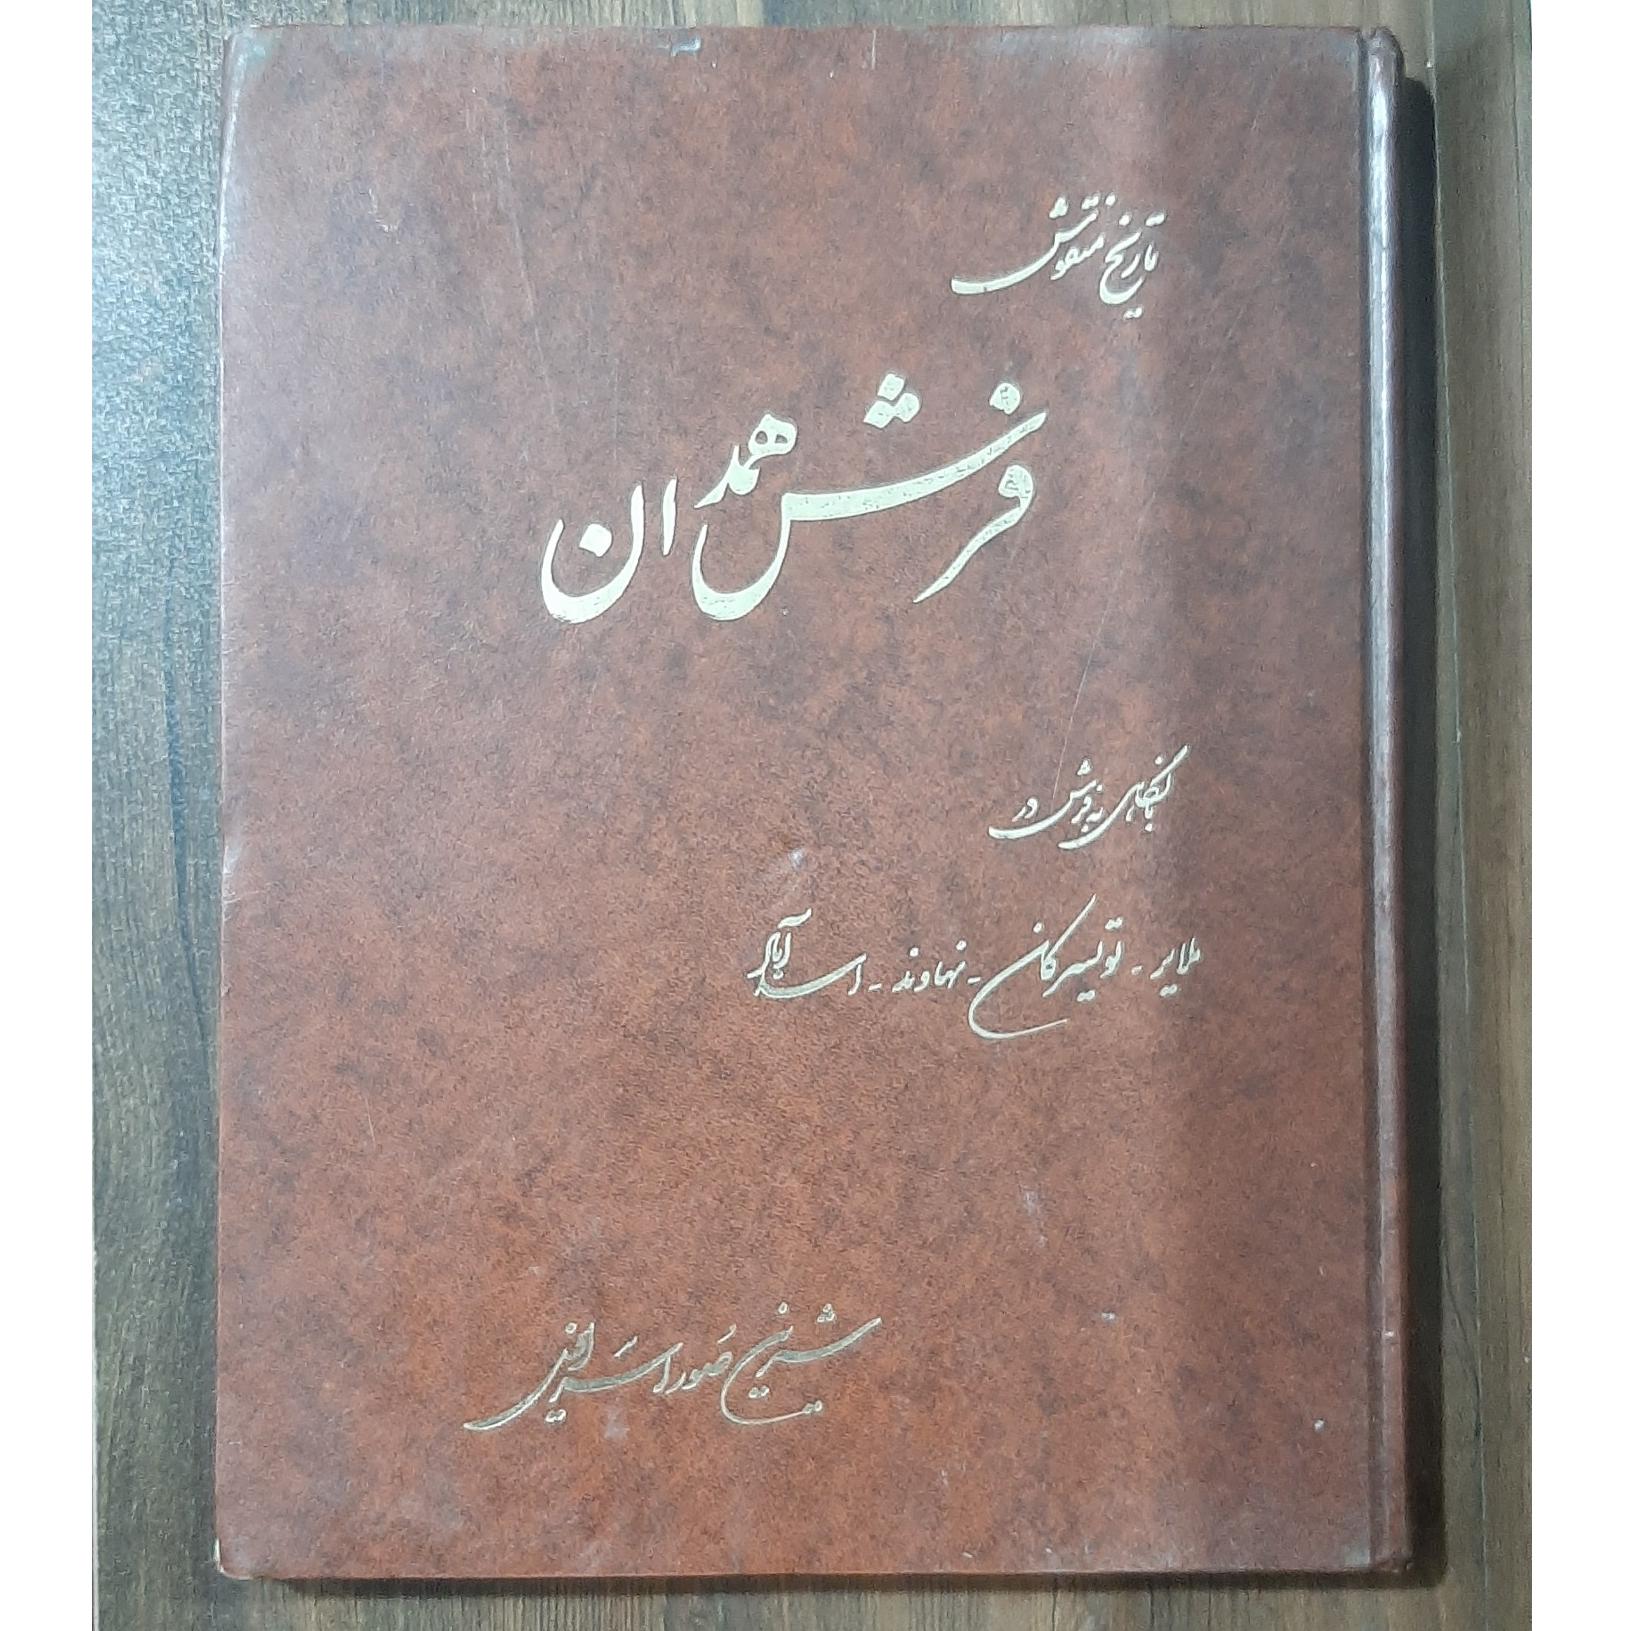 تاریخ منقوش
فرش همدان
با نگاهی به فرش در
ملایر - تویسرکان - نهاوند - اسدآباد
شیرین صوراسرافیل